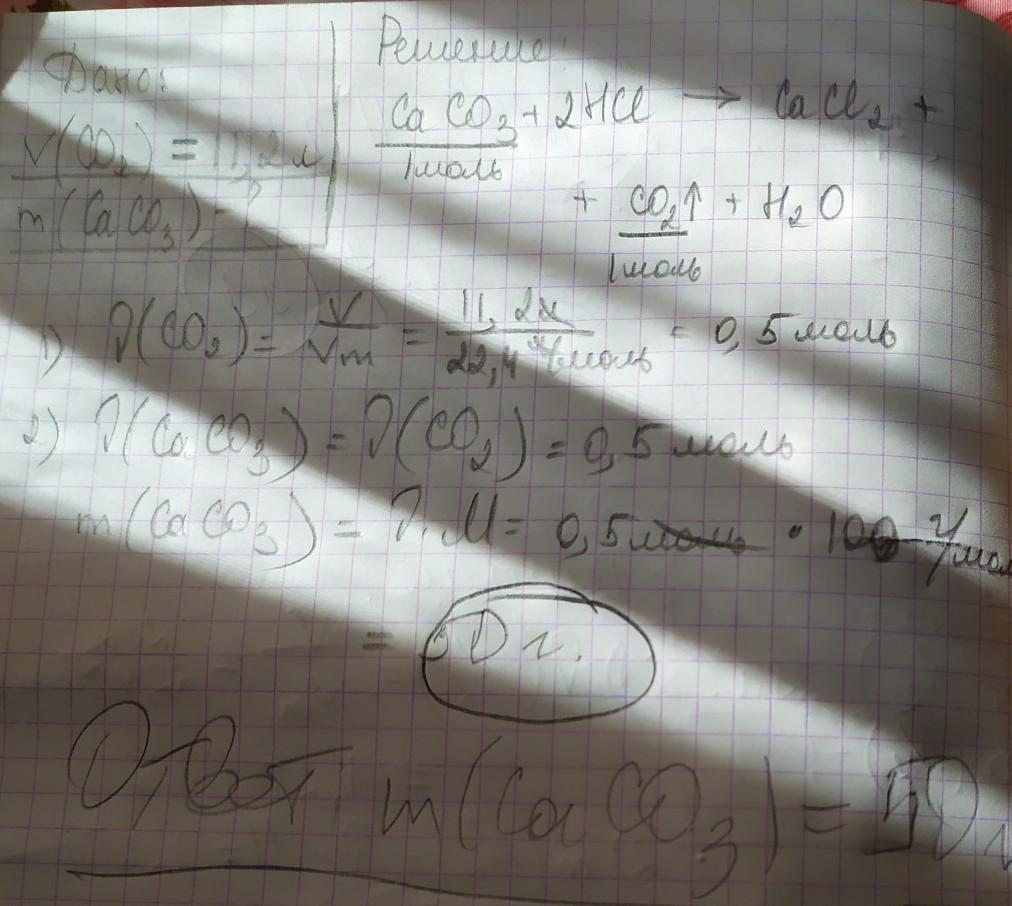 Дано:
V(CO₂) = 11,2 л
m(CaCO₃) - ?
Решение:
CaCO₃ + 2HCl → CaCl₂ +
1моль
+ CO₂↑ + H₂O
1моль
1) ν(CO₂) = V/Vm = 11,2л/22,4 л/моль = 0,5 моль
2) ν(CaCO₃) = ν(CO₂) = 0,5 моль
m(CaCO₃) = ν · M = 0,5 моль · 100 г/мол
= 50 г.
Ответ: m(CaCO₃) = 50 г